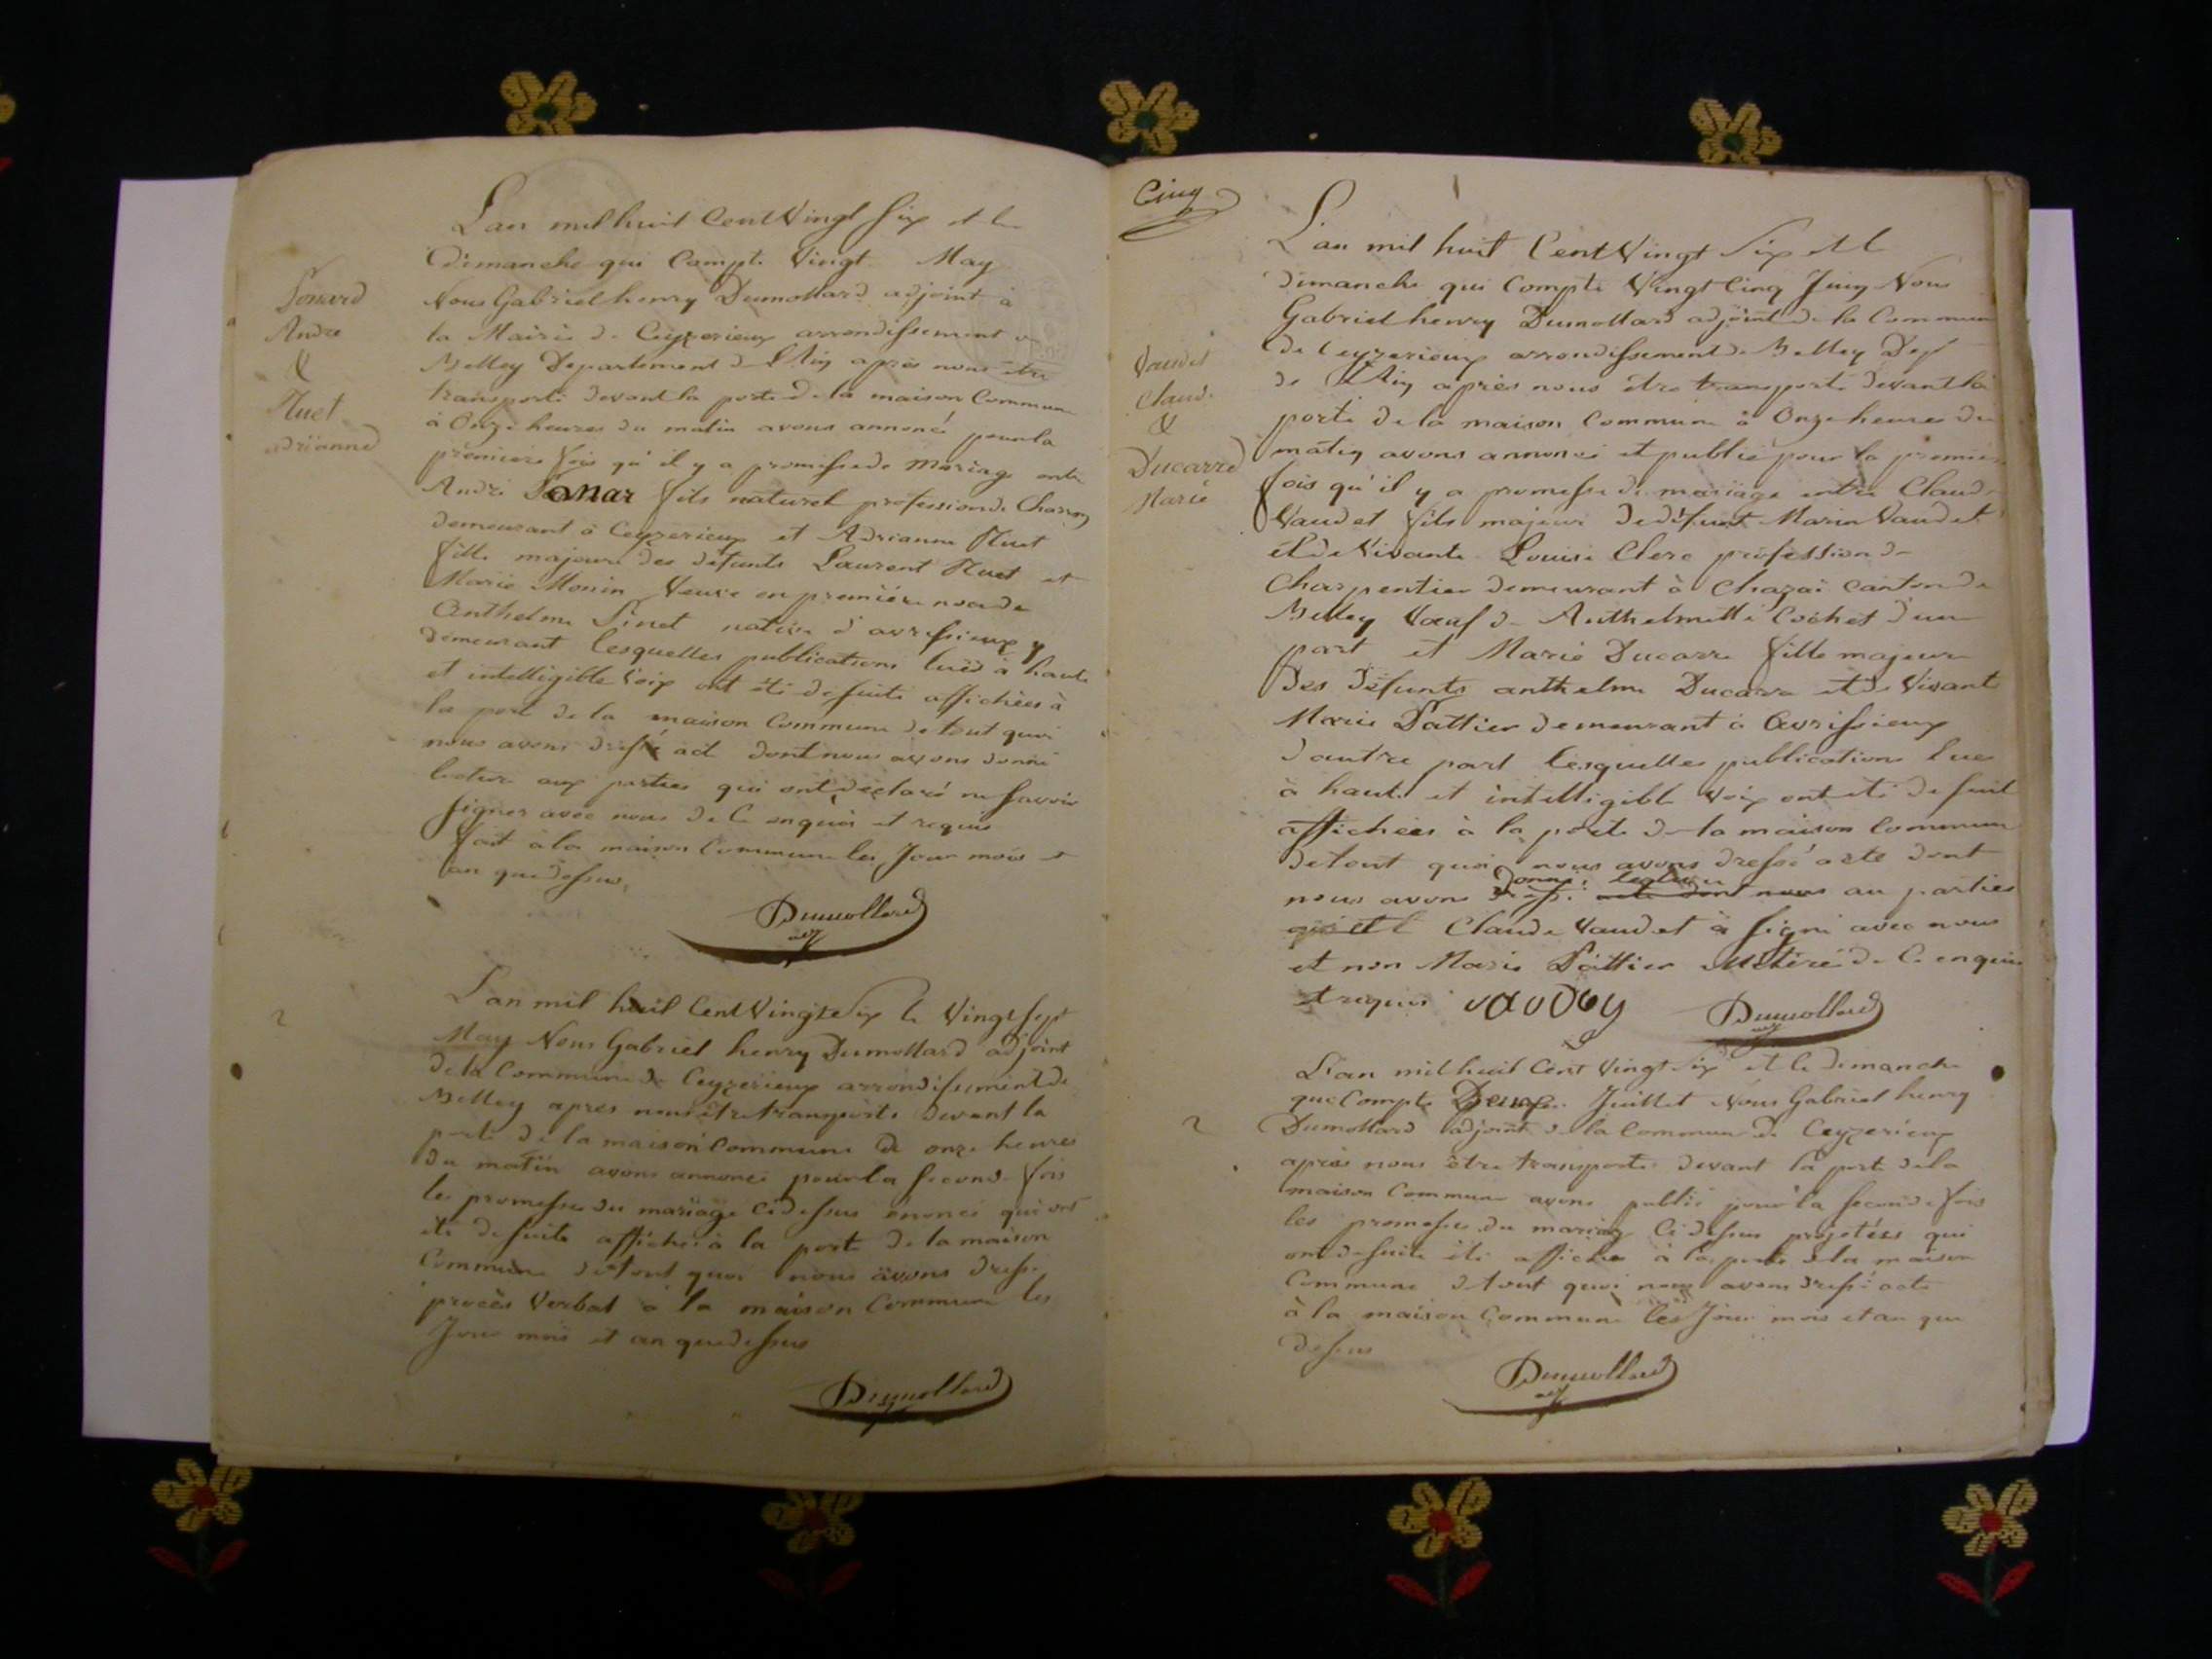 L'an mil huit Cent Vingt six et le
Dimanche qui Compte Vingt May
Nous Gabriel henry Dumollard adjoint à
la Mairie de Ceyzerieux arrondissement de
Belley Departement de l'Ain après nous être
transporté devant la porte de la maison Commune
à Onze heures du matin avons annoncé pour la
premiere fois qu'il y a promesse de mariage entre
André fils naturel profession de Charron
demeurant à Ceyzerieux et Adrianne Huet
fille majeure des défunts Laurent Huet et
Marie Monin Veuve en première noce de
Anthelme Sinet native d'avrissieux y
demeurant lesquelles publications lues à haute
et intelligible Voix ont été de suite affichées à
la porte de la maison Commune de tout quoi
nous avons dressé act dont nous avons donné
lecture aux parties qui ont déclaré ne savoir
signer avec nous de Ce enquis et requis
fait à la maison Commune les Jour mois et
an que dessus
Dumollard
adj
Andre
&
Huet
adrianne
2
L'an mil huit Cent Vingt Six le Vingt sept
May Nous Gabriel henry Dumollard adjoint
de la Commune de Ceyzerieux arrondissement de
Belley après nous être transporté devant la
porte de la maison Commune à onze heures
du matin avons annoncé pour la seconde fois
les promesses du mariage ci dessus énoncé qui ont
été de suite affiché à la porte de la maison
Commune de tout quoi nous avons dressé
procès Verbal à la maison Commune les
Jour mois et an que dessus
Dumollard
Cinq
L'an mil huit Cent Vingt Six et le
dimanche qui Compte Vingt Cinq Juin Nous
Gabriel henry Dumollard adjoint de la Commune
de Ceyzerieux arrondissement de Belley Dep
de l'Ain après nous être transporté devant la
porte de la maison Commune à Onze heures du
matin avons annoncé et publié pour la premiere
fois qu'il y a promesse de mariage entre Claude
Vaudet fils majeur de défunt Marin Vaudet
et de Vivante Louise Clerc profession de
Charpentier demeurant à Chazai Canton de
Belley Veuf de Anthelmette Cochet d'une
part et Marie Ducarre fille majeure
des défunts anthelme Ducarre et de Vivante
Marie Pattier demeurant à Avrissieux
d'autre part lesquelles publications lues
à haute et intelligible Voix ont été de suite
affichées à la porte de la maison Commune
de tout quoi nous avons dressé acte dont
donné lecture
nous avons dressé acte dont nous au parties
qui et Claude Vaudet à signé avec nous
et non Marie Pattier illétéré de Ce enquis
et requis Dumollard
adj
Vaudet
Claude
&
Ducarre
Marie
L'an mil huit Cent Vingt Six et le dimanche
que Compte Deux Juillet Nous Gabriel henry
2
Dumollard adjoint de la Commune de Ceyzerieux
après nous être transporté devant la porte de la
maison Commune avons publié pour la seconde fois
les promesses du mariage Ci dessus projetées qui
ont de suite été affiché à la porte de la maison
Commune de tout quoi nous avons dressé acte
à la maison Commune les Jour mois et an que
dessus
Dumollard
adj